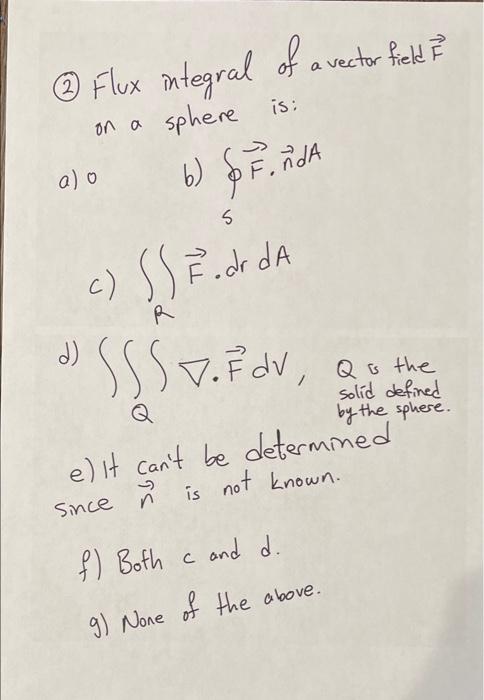 ② Flux integral of a vector field F⃗
on a sphere is:
a) 0 b) ∮ F⃗ . n⃗ dA
S
c) ∫∫ F⃗ . dr dA
R
d) ∫∫∫ ∇ . F⃗ dV, Q is the
Q solid defined
by the sphere.
e) It can't be determined
since n⃗ is not known.
f) Both c and d.
g) None of the above.